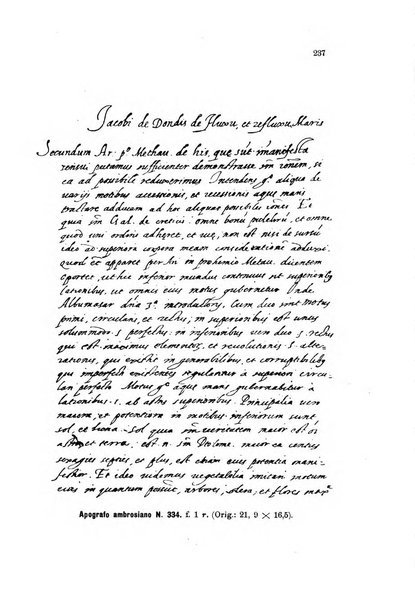 237
Jacobi de Dondis de Fluxu, et refluxu Maris
Secundum Ar: p.º Methau. de his, que sūt manifesta
sensui putamus sufficienter demonstrasse in̄ rōnem, si
ea ad possibile redduxerimus Intendens g.º aliqua de
varijs motibus accessionis, et recessionis aquę maris
tractare adducam ad aliquale possibiles rōnes. Et
quia in Gal. de creticis: omne bonū et omne,
quod uni ordinis adheret, et usu, non est nisi de sursū
ideo ad superiora corpora meam consideratione adduxi.
quod et apparet per Ar in prohemio Metau. dicentem
oportet, ut hic inferior mundus continuus sit superioribȝ
lationibus. ut omnis eius motus gubernetur Unde
Albumasar dña 3.º Cum duo sint motus
primi, circularis, et rectus; in superioribus est unus
solummodo .s. perfectus in inferioribus uero duo .s. rectus
qui est maxime elementorum, et revolutionis .s. alte-
rationis, qui existit in generabilibus, et corruptibilibȝ
que imperfecta existentes regulantur à superiori circu-
lari perfecto Motus g.º aquę maris gubernabitur à
lationibus .s. ab astris superioribus. Principalia uero
maiora, et potentiora in motibus inferiorum sunt
sol, et Luna. Sol quia in maior est oībȝ
astris et terra: est .n. in Ptolem. maior ea centies
sexagies septies, et plus, est etiam eius potentia mani-
festior. Et ideo uidemus vegetabilia initari motum
eius in quantum possunt, arbores, olera, et flores
Apografo ambrosiano N. 334. f. 1 r. (Orig.: 21, 9 × 16,5).